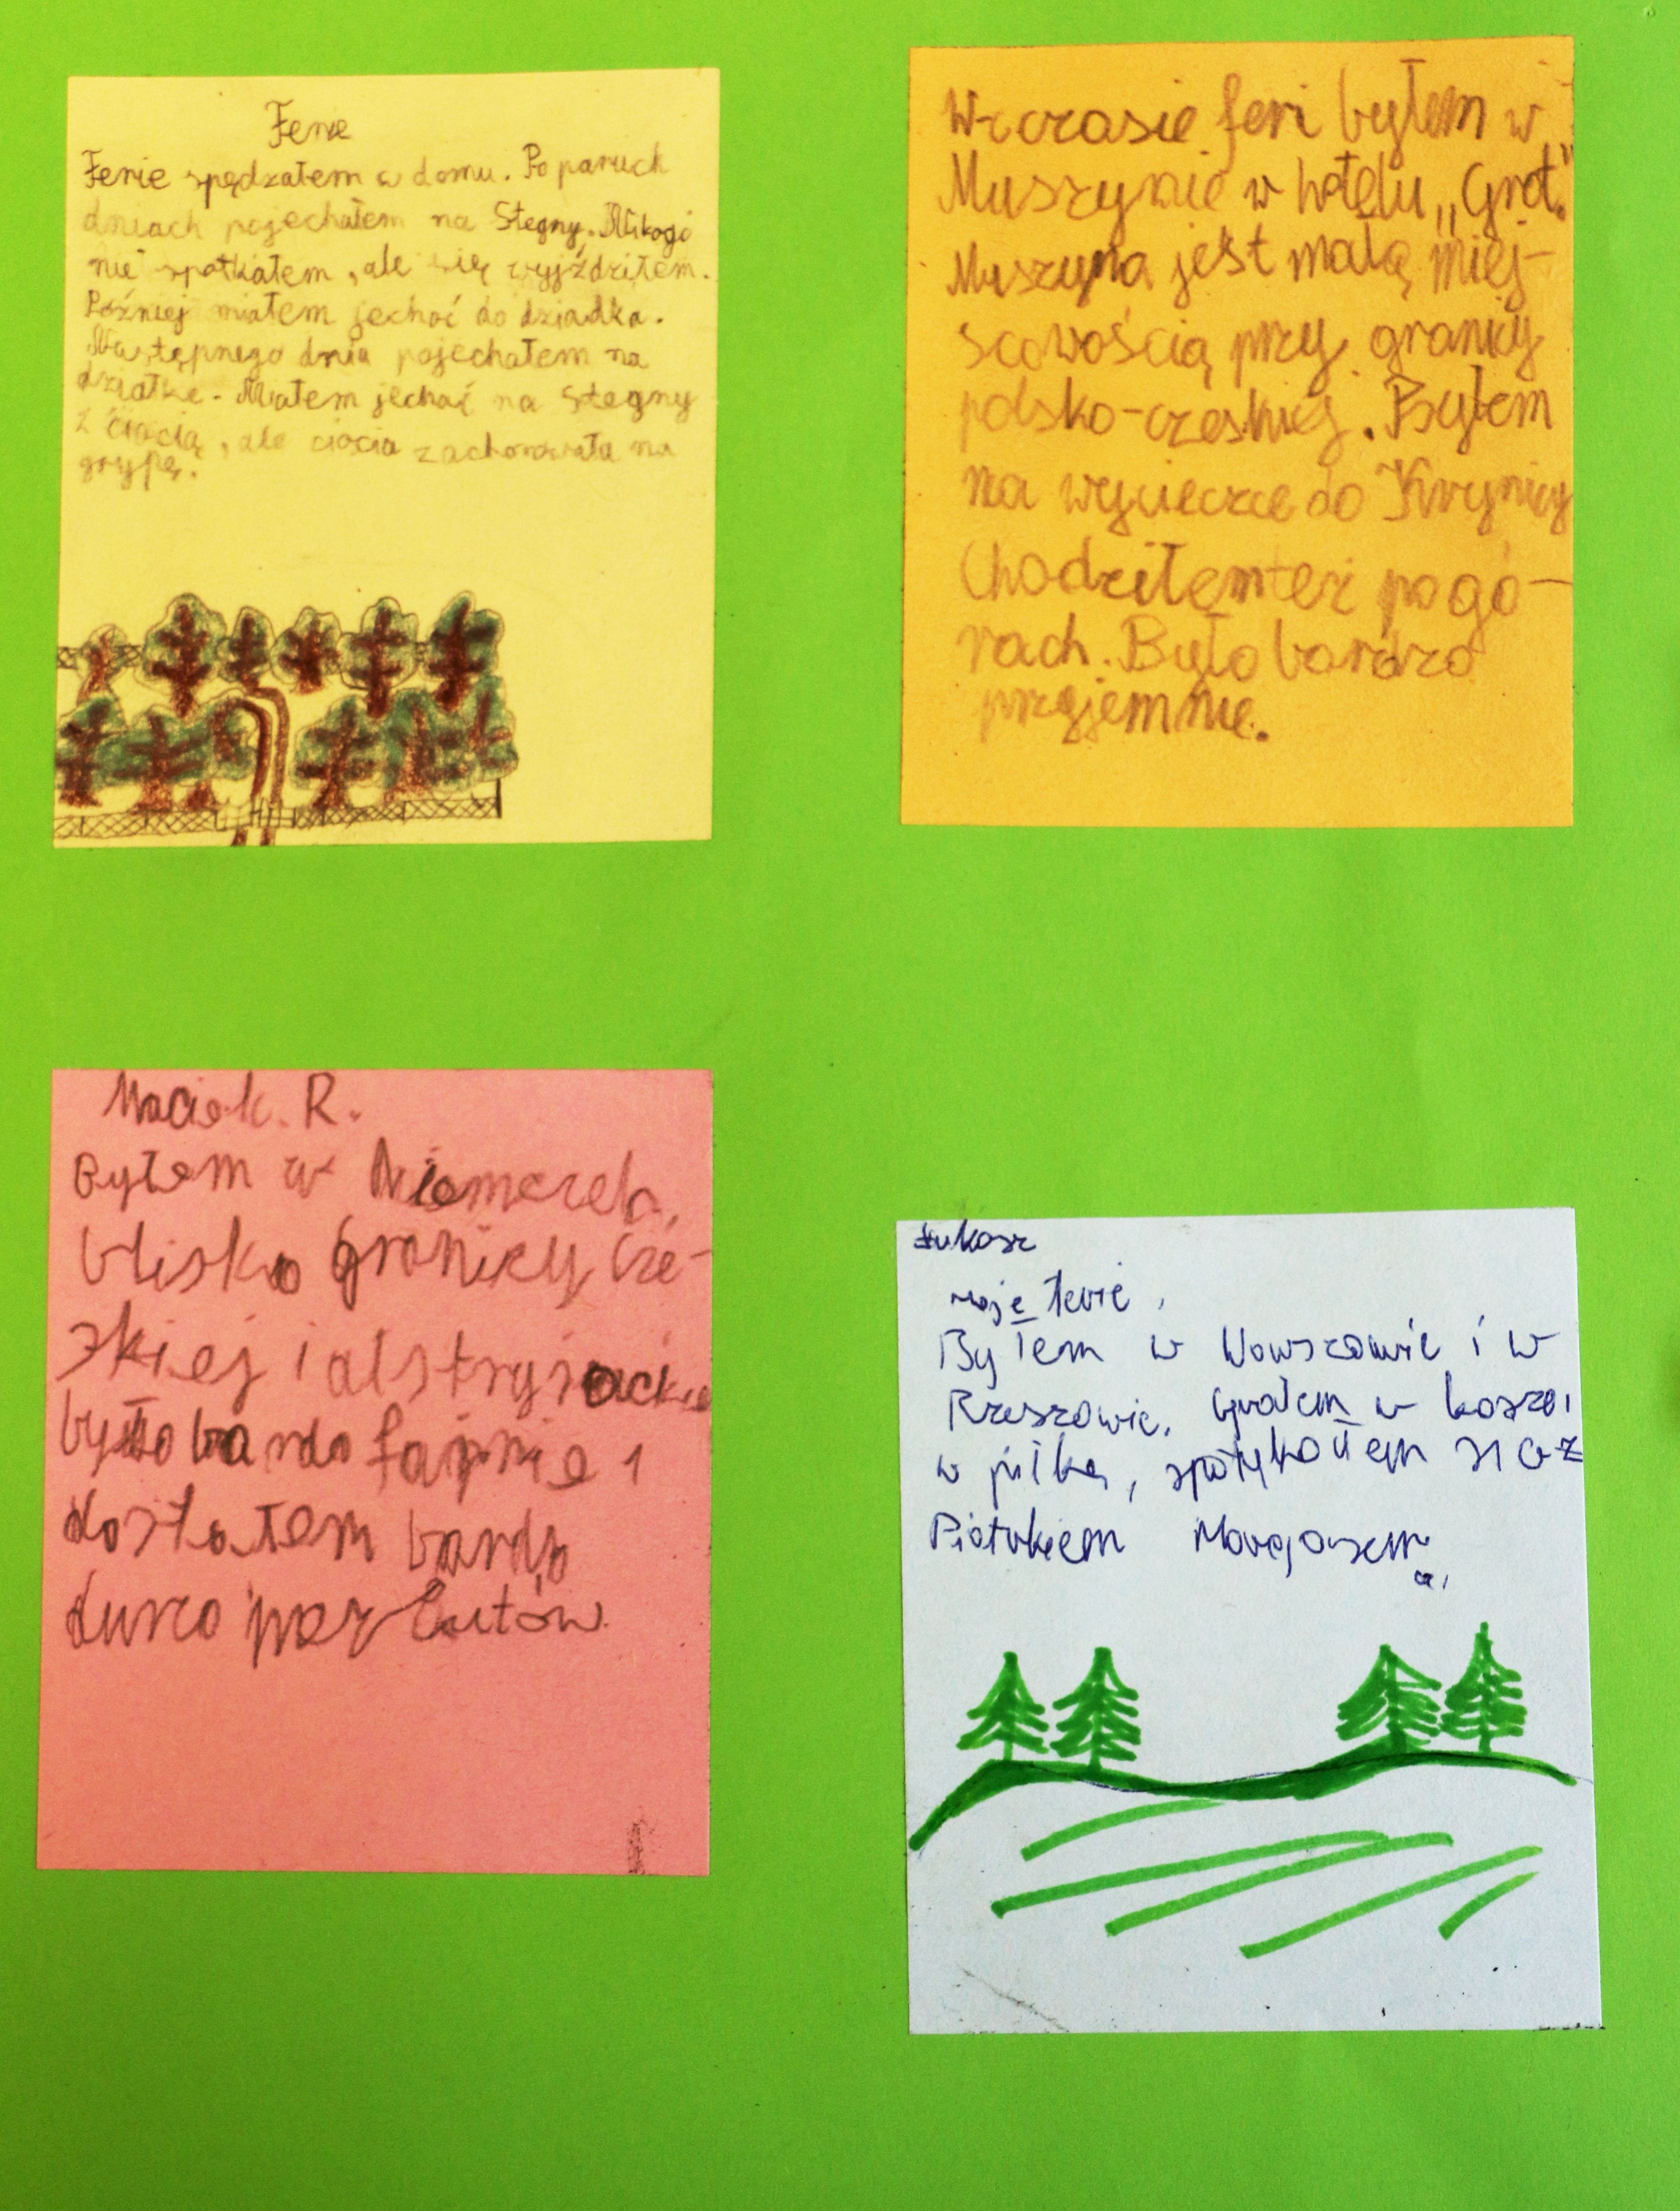 Ferie
Ferie spędzałem w domu. Po paruch
dniach pojechałem na Stegny. Nikogo
nie spotkałem, ale się wyjździłem.
Później miałem jechać do dziadka.
Następnego dnia pojechałem na
działkę. Miałem jechać na Stegny
z ciocią, ale ciocia zachorowała na
grypę.
W czasie feri byłem w
Muszynie w hotelu „Grot."
Muszyna jest małą miej-
scowością przy granicy
polsko-czeskiej. Byłem
na wycieczce do Krynicy
Chodziłem też po gó-
rach. Było bardzo
przyjemnie.
Maciek. R.
Byłem w Niemczech,
blisko granicy Cze-
skiej i alstryjackie
było bardo fajnie i
dostałem bardo
durzo prezentów
Łukasz
moje ferie.
Byłem w Warszawie i w
Rzeszowie. Grałem w kosza i
w piłkę, spotykałem się z
Piotrkiem